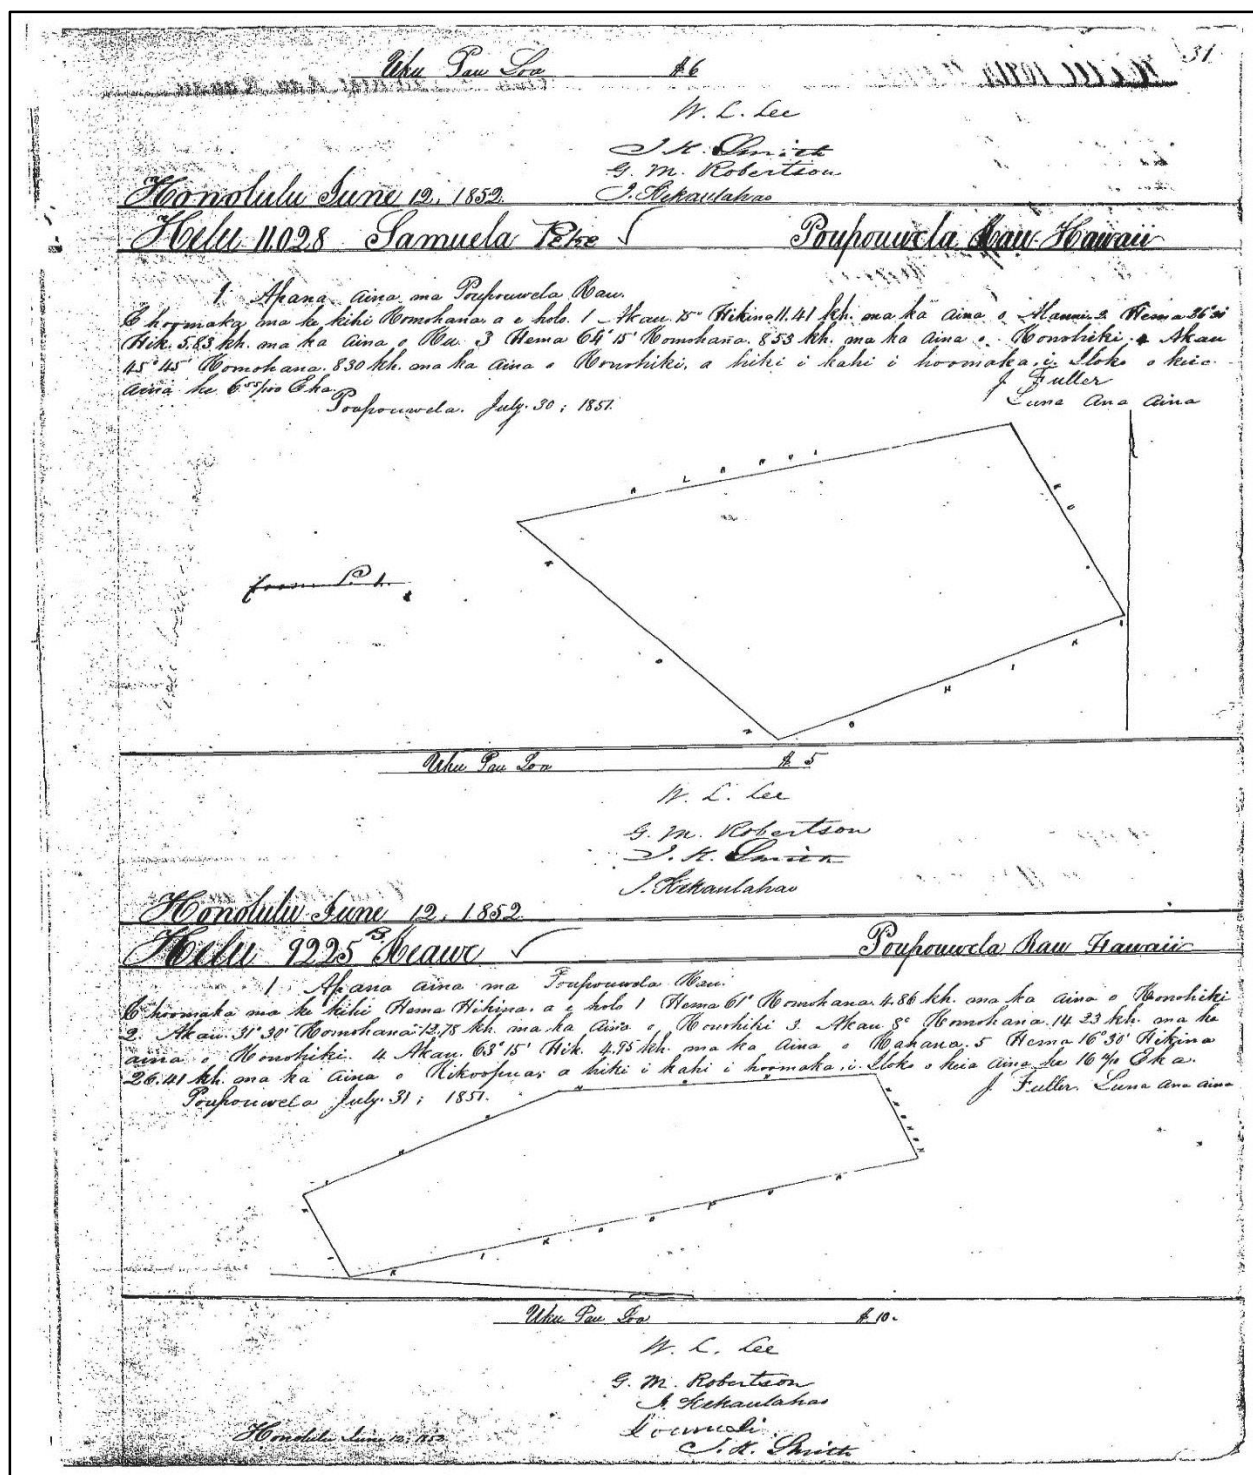 31
Uku Pau Loa $6
W. L. Lee
J. K. Smith
G. M. Robertson
J. Kekaulahao
Honolulu June 12, 1852.
Helu 11028 Samuela Poupouwela Kau Hawaii
1 Apana aina ma Poupouwela Kau.
E hoomaka ma ke kihi Komohana a e holo 1 Akau 15° Hikina 11.41 kh. ma ka aina o 2 Hema 36°30'
Hik. 5.83 kh. ma ka aina o Ku 3 Hema 64° 15' Komohana 853 kh. ma ka aina o Konohiki 4 Akau
45° 45' Komohana 830 kh. ma ka aina o Konohiki, a hiki i kahi i hoomaka, i iloko o keia
aina he 6 55/100 Eka
J. Fuller
Poupouwela. July. 30, 1851.
Luna Ana aina
Uku Pau Loa $5
W. L. Lee
G. M. Robertson
J. K. Smith
J. Kekaulahao
Honolulu June 12, 1852.
Helu 9225 B Keawe Poupouwela Kau Hawaii
1 Apana aina ma Poupouwela Kau.
E hoomaka ma ke kihi Hema Hikina, a e holo 1 Hema 61° Komohana 4.86 kh. ma ka aina o Konohiki
2. Akau 31° 30' Komohana 12.78 kh. ma ka aina o Konohiki 3. Akau 8° Komohana 14 23 kh. ma ka
aina o Konohiki. 4 Akau 63° 15' Hik. 4.95 kh. ma ka aina o Kahana. 5 Hema 16° 30' Hikina
26.41 kh. ma ka aina o Kikoopuaa; a hiki i kahi i hoomaka, i iloko o keia aina he 16 Eka.
Poupouwela July. 31, 1851. J. Fuller. Luna ana aina
Uku Pau Loa $10.
W. L. Lee
G. M. Robertson
J. Kekaulahao
J. K. Smith
Honolulu June 12, 1852